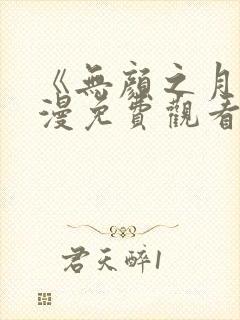 《無顏之月
漫免費觀看
君天醉1